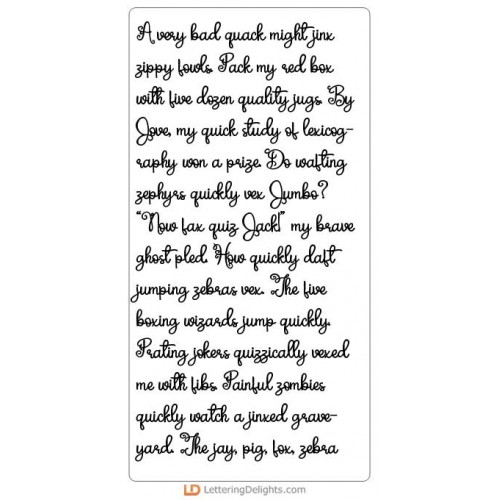 A very bad quack might jinx
zippy fowls. Pack my red box
with five dozen quality jugs. By
Jove, my quick study of lexicog-
raphy won a prize. Do wafting
zephyrs quickly vex Jumbo?
"Now fax quiz Jack!" my brave
ghost pled. How quickly daft
jumping zebras vex. The five
boxing wizards jump quickly.
Prating jokers quizzically vexed
me with fibs. Painful zombies
quickly watch a jinxed grave-
yard. The jay, pig, fox, zebra
LD LetteringDelights.com